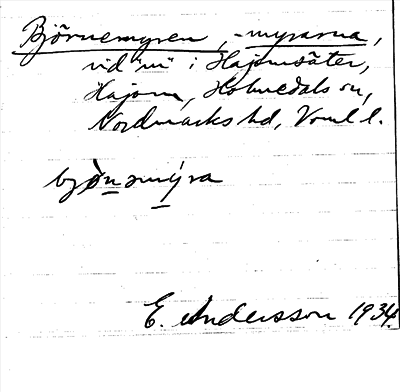 Björnemyren, -myrarna,
vid "m" i Hajomsäter,
Hajom, Holmedals sn,
Nordmarks hd, Vrml l.
bjö̀nəmýra
E. Andersson 1934.